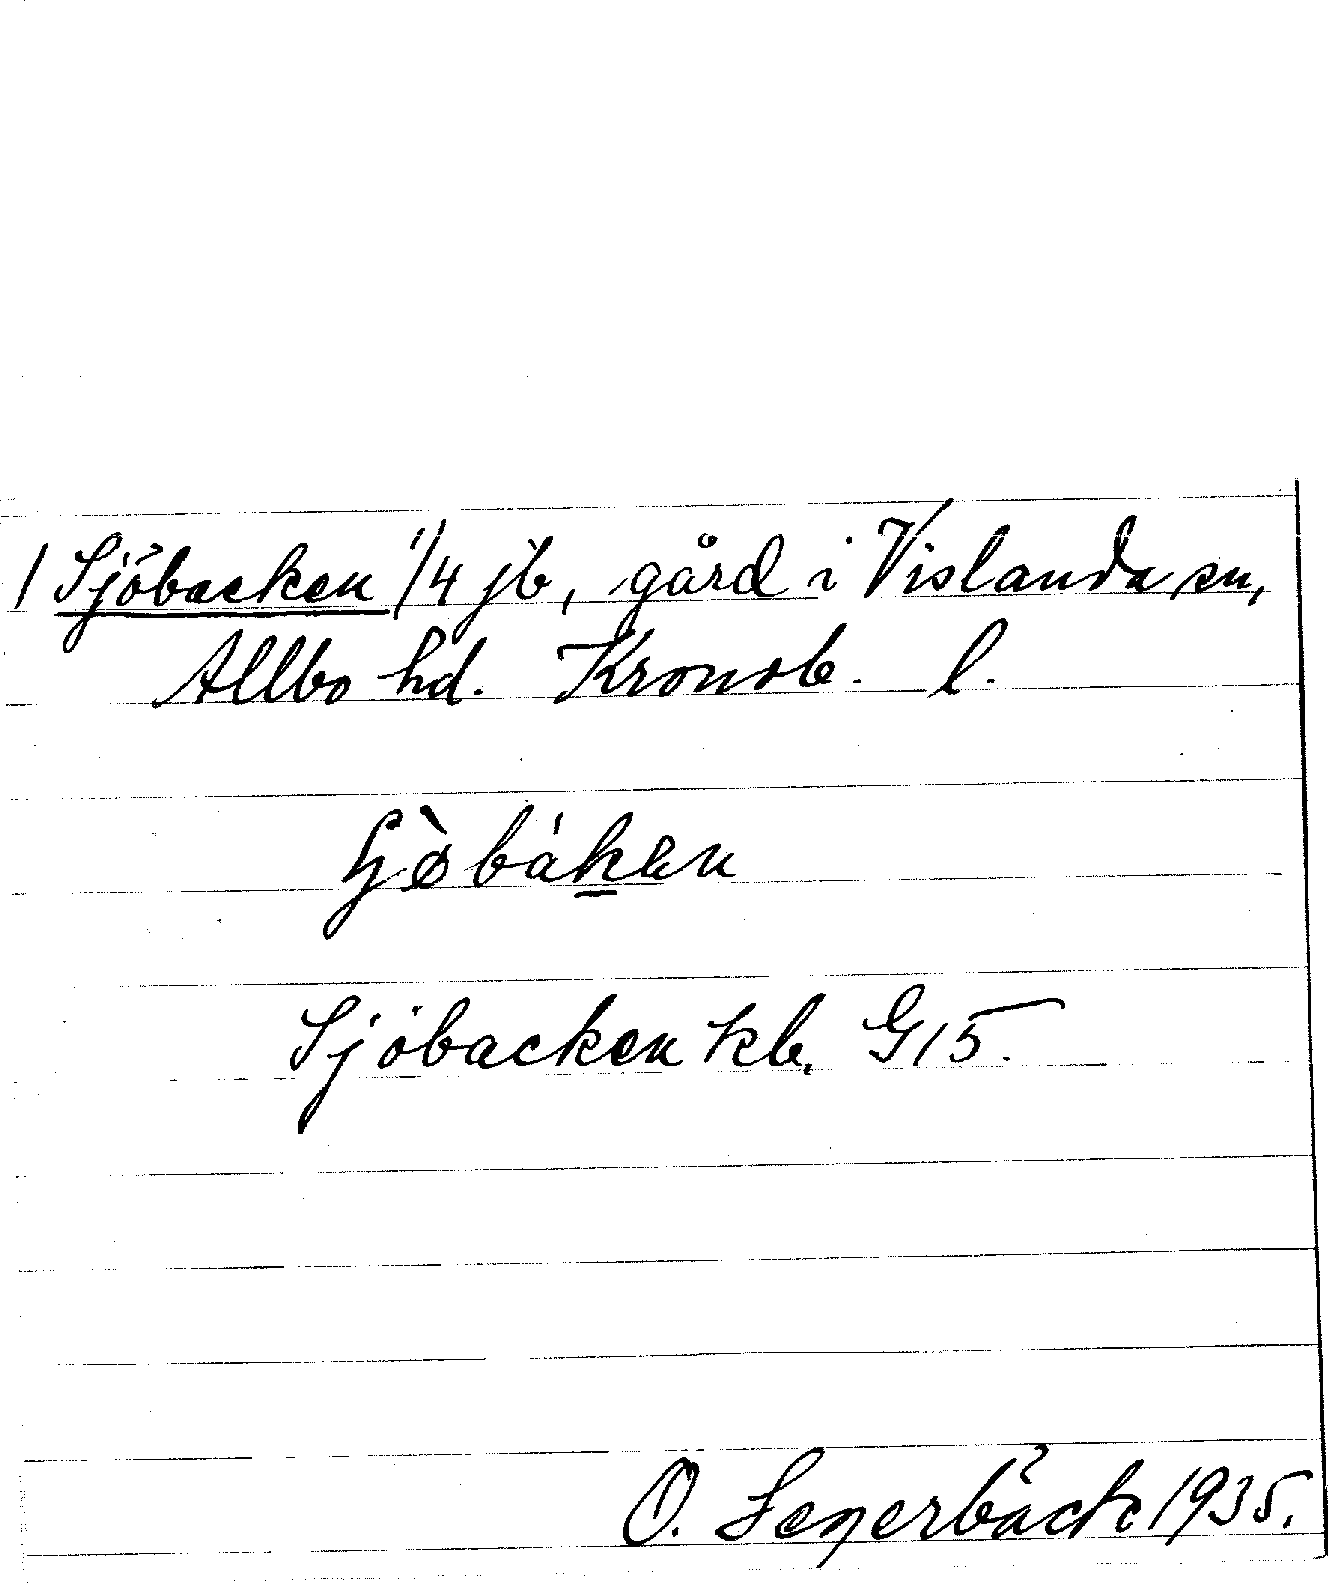 / Sjöbacken 1/4 jb, gård i Vislanda sn,
Allbo hd. Kronob. l.
Sjöbacken kb. G15.
O. Segerbäck 1935.